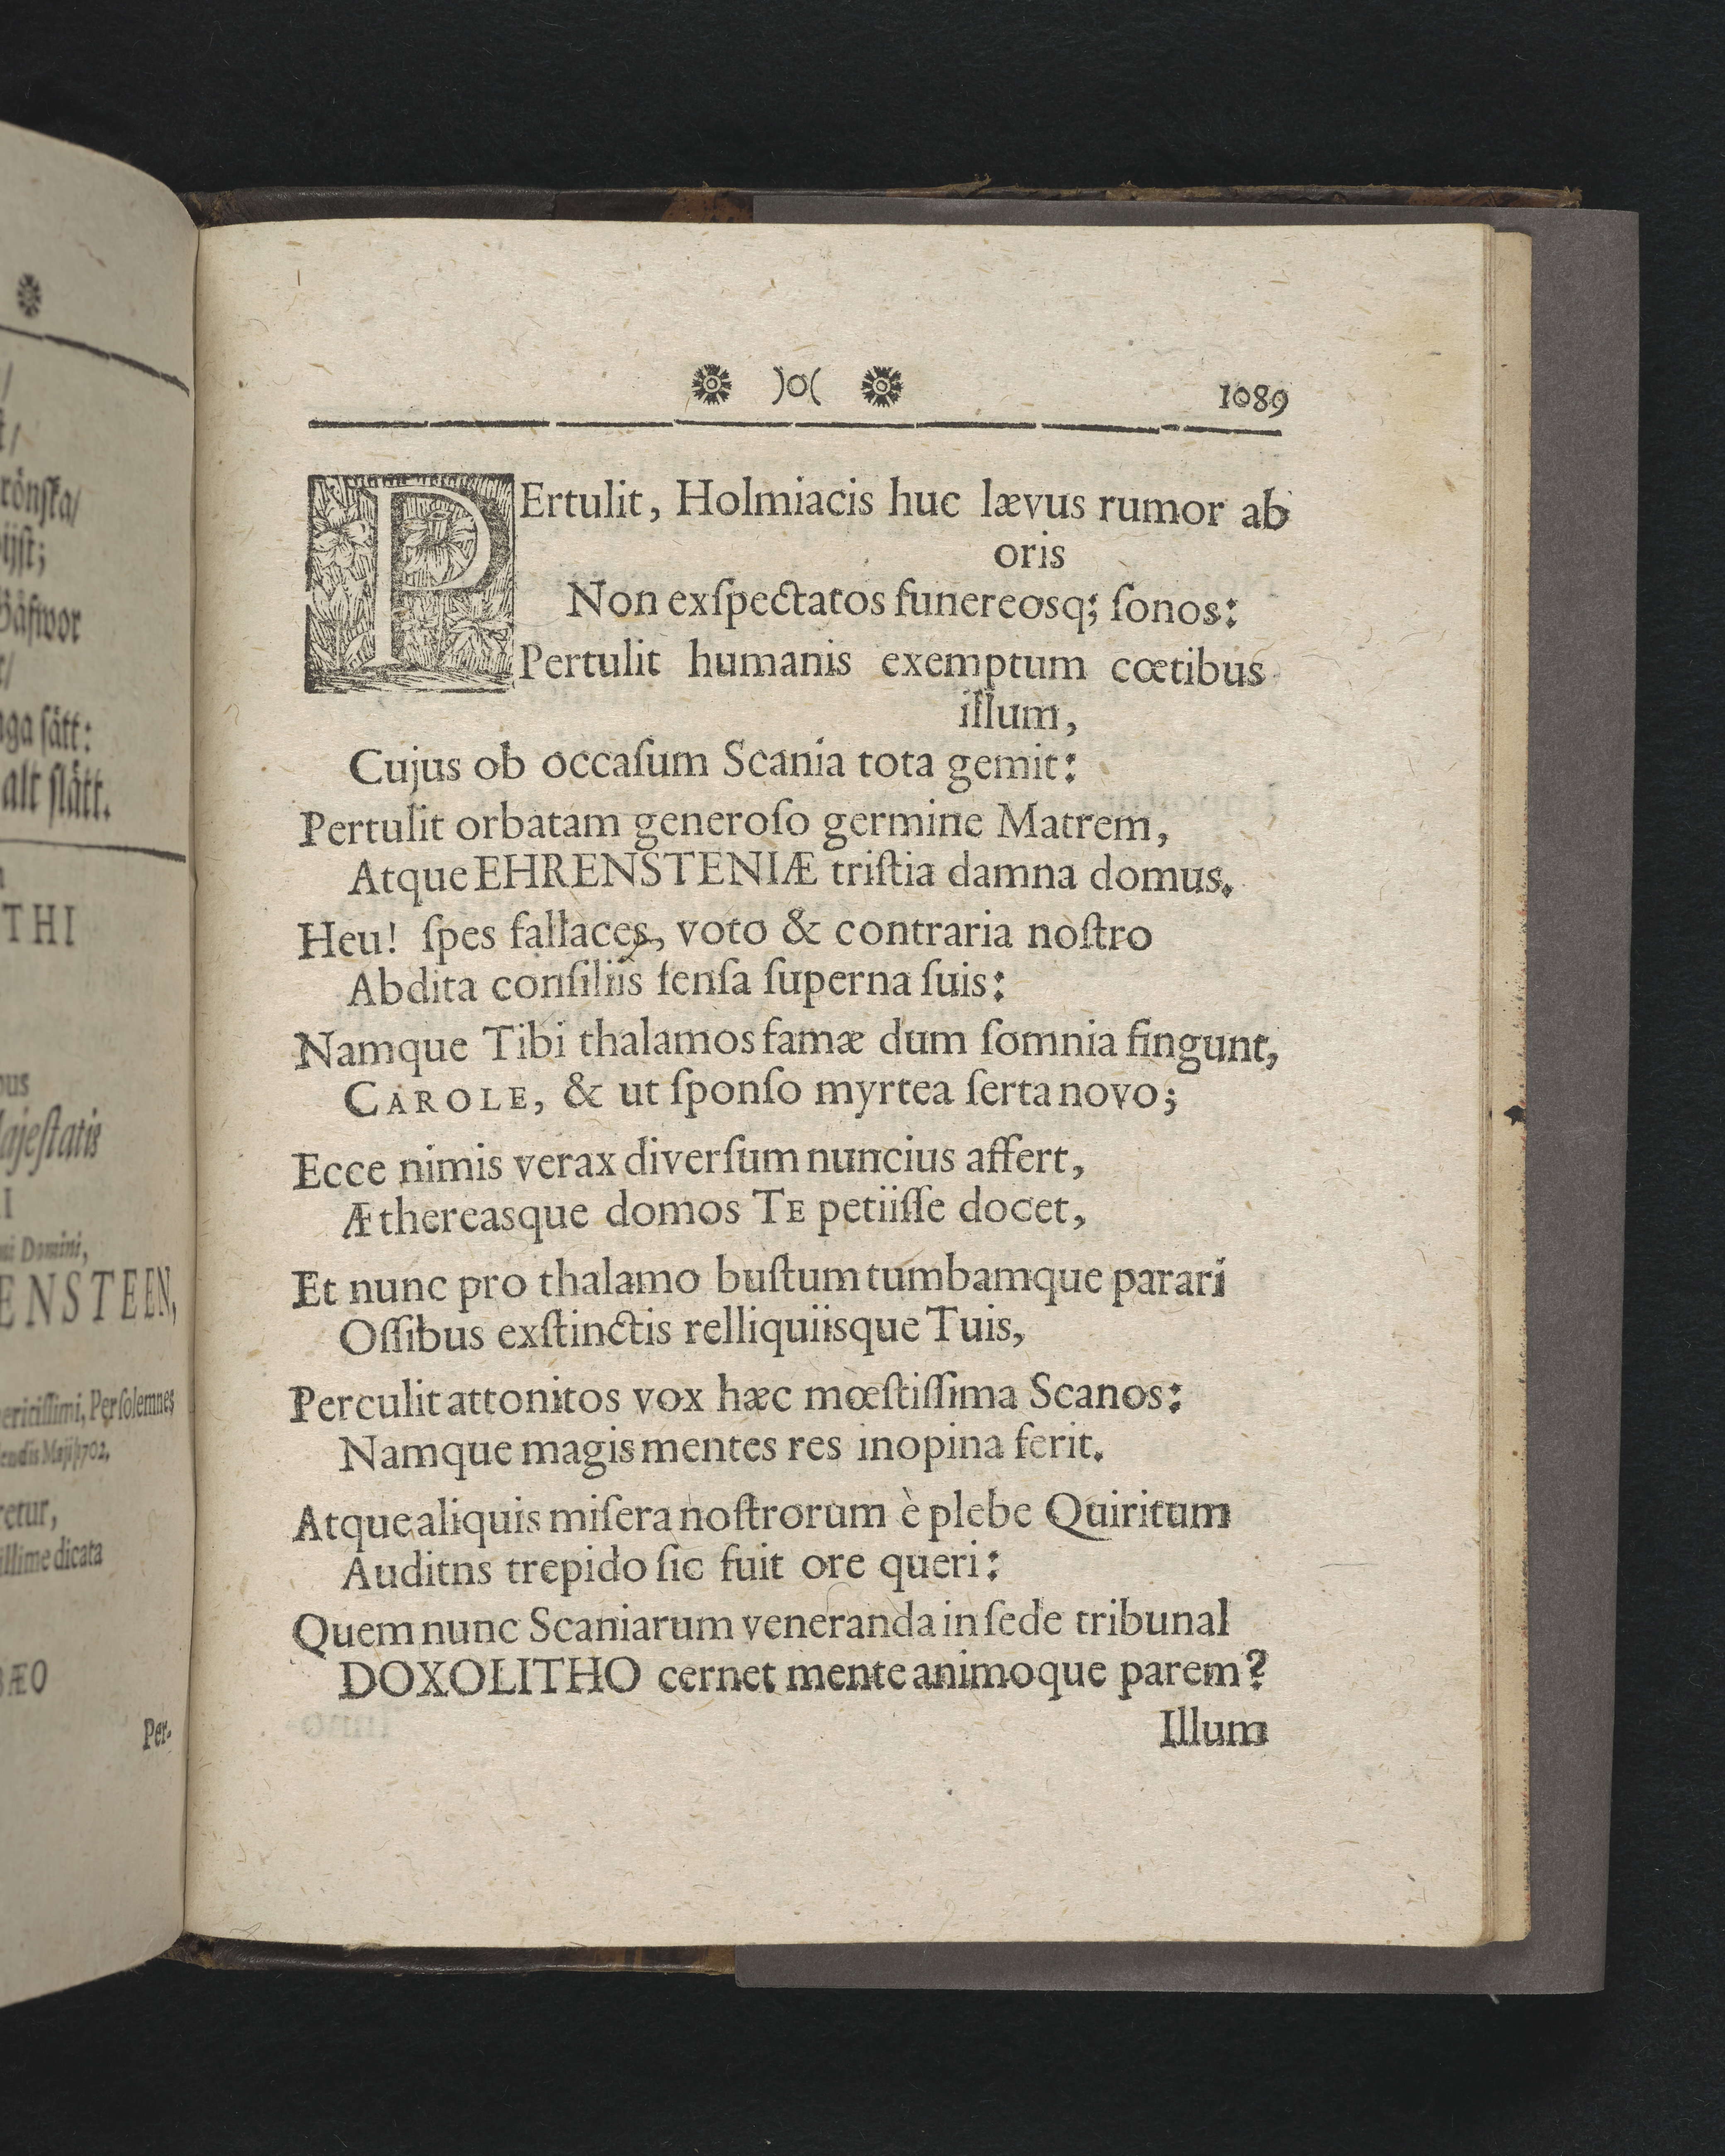 )o( 1089
PErtulit, Holmiacis huc lævus rumor ab
oris
Non exſpectatos funereosq; ſonos:
Pertulit humanis exemptum cœtibus
illum,
Cujus ob occaſum Scania tota gemit:
Pertulit orbatam generoſo germine Matrem,
Atque EHRENSTENIÆ triſtia damna domus.
Heu! ſpes fallaces, voto & contraria noſtro
Abdita conſiliis ſenſa ſuperna ſuis:
Namque Tibi thalamos famæ dum ſomnia fingunt,
CAROLE, & ut ſponſo myrtea ſerta novo;
Ecce nimis verax diverſum nuncius affert,
Æthereasque domos TE petiiſſe docet,
Et nunc pro thalamo buſtum tumbamque parari
Oſſibus exſtinctis relliquiisque Tuis,
Perculit attonitos vox hæc mœſtiſſima Scanos:
Namque magis mentes res inopina ferit.
Atque aliquis miſera noſtrorum è plebe Quiritum
Auditns trepido ſic fuit ore queri:
Quem nunc Scaniarum veneranda in ſede tribunal
DOXOLITHO cernet mente animoque parem?
Illum
rönſka/
Bäſwor
ſätt:
alt ſlätt.
THI
ajeſtatis
Domini,
ENSTEEN,
Perſolemnes
dicata
Per-